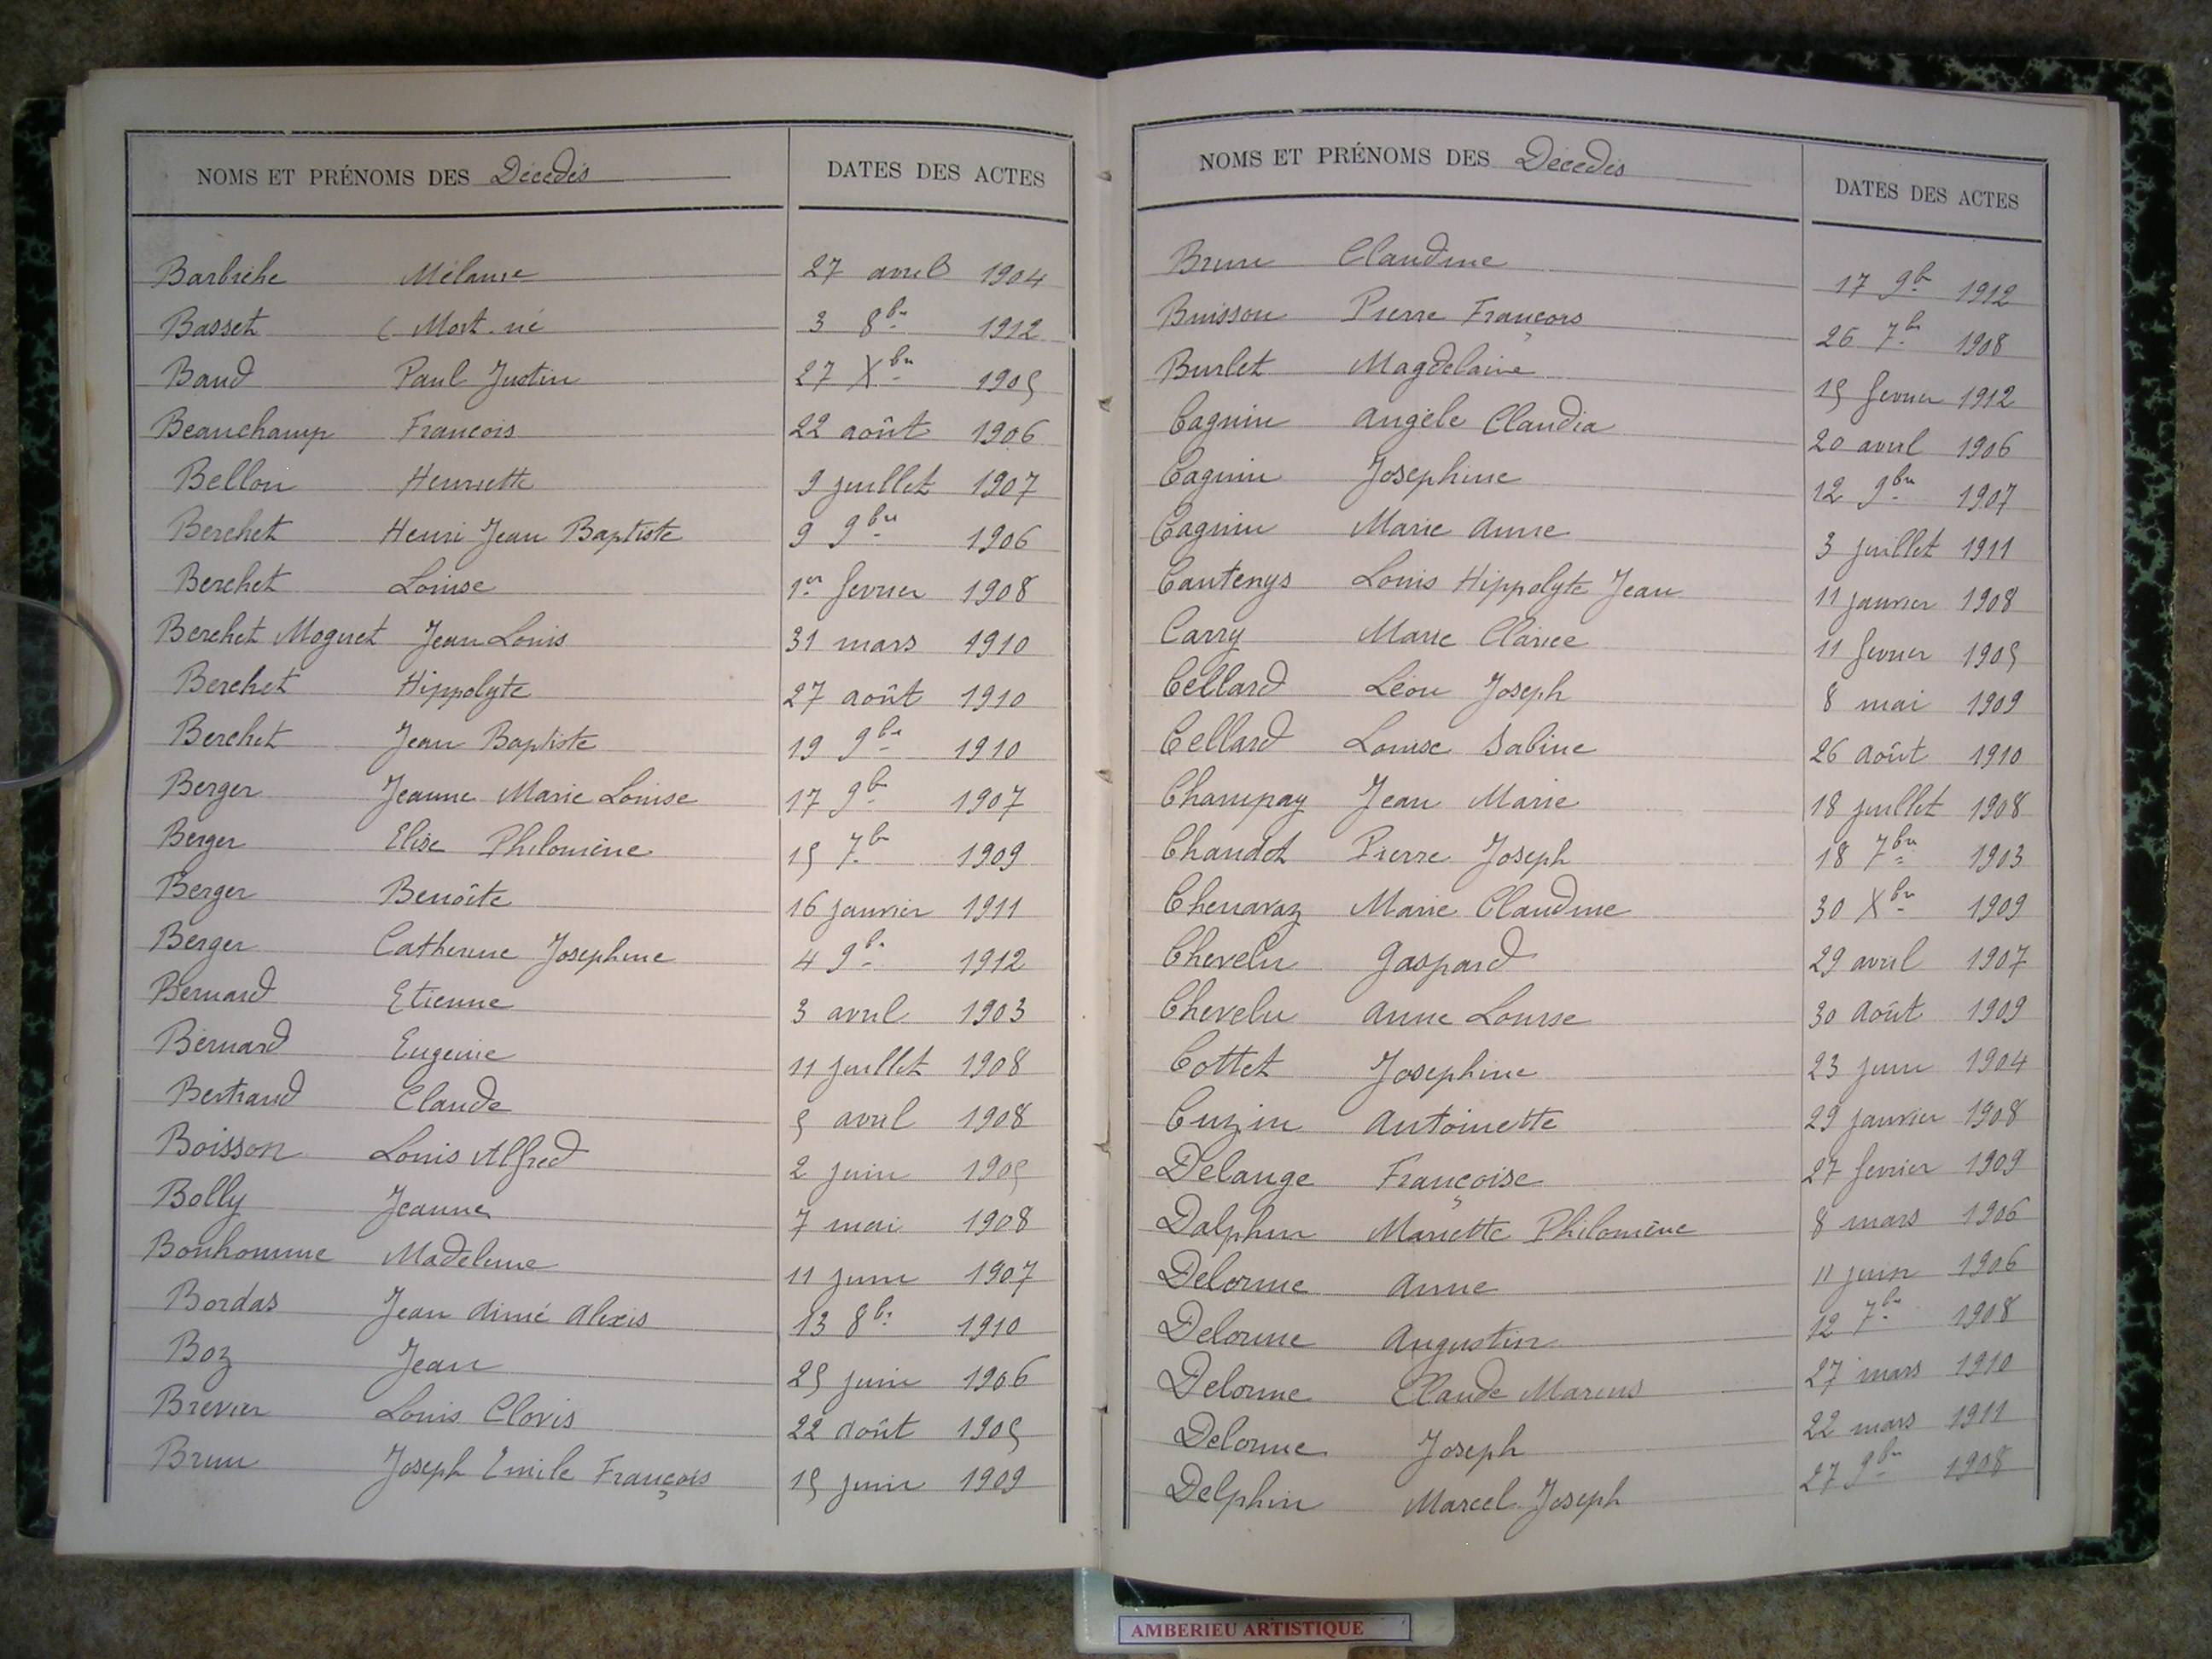 NOMS ET PRÉNOMS DES Décédés DATES DES ACTES
Barbiche Mélanie 27 avril 1904
Basset (Mort-né 3 8bre 1912
Baud Paul Justin 27 Xbre 1905
Beauchamp Francois 22 août 1906
Bellon Henriette 9 juillet 1907
Berchet Henri Jean Baptiste 9 9bre 1906
Berchet Louise 1er fevrier 1908
Berchet Moguet Jean Louis 31 mars 1910
Berchet Hippolyte 27 août 1910
Berchet Jean Baptiste 19 9bre 1910
Berger Jeanne Marie Louise 17 9bre 1907
Berger Elise Philomène 15 7bre 1909
Berger Benoîte 16 janvier 1911
Berger Catherine Josephine 4 9bre 1912
Bernard Etienne 3 avril 1903
Bernard Eugenie 11 juillet 1908
Bertrand Claude 5 avril 1908
Boisson Louis Alfred 2 juin 1905
Bolly Jeanne 7 mai 1908
Bonhomme Madeleine 11 juin 1907
Bordas Jean Aimé Alexis 13 8bre 1910
Boz Jean 25 juin 1906
Brevier Louis Clovis 22 août 1905
Brun Joseph Emile François 15 juin 1909
NOMS ET PRÉNOMS DES Décédés DATES DES ACTES
Brun Claudine 17 9bre 1912
Buisson Pierre François 26 7bre 1908
Burlet Magdelaine 15 fevrier 1912
Cagnin Angèle Claudia 20 avril 1906
Cagnin Josephine 12 9bre 1907
Cagnin Marie Anne 3 juillet 1911
Cantenys Louis Hippolyte Jean 11 janvier 1908
Carry Marie Clarice 11 fevrier 1905
Cellard Léon Joseph 8 mai 1909
Cellard Louise Sabine 26 Août 1910
Champay Jean Marie 18 juillet 1908
Chaudet Pierre Joseph 18 7bre 1903
Chenavaz Marie Claudine 30 Xbre 1909
Chevelu Gaspard 29 avril 1907
Chevelu Anne Louise 30 Août 1909
Cottet Josephine 23 juin 1904
Cuzin Antoinette 29 janvier 1908
Delange Françoise 27 fevrier 1909
Dalphin Mariette Philomène 8 mars 1906
Delorme Anne 11 juin 1906
Delorme Augustin 12 7bre 1908
Delorme Claude Marius 27 mars 1910
Delorme Joseph 22 mars 1911
Delphin Marcel Joseph 27 9bre 1908
AMBERIEU ARTISTIQUE